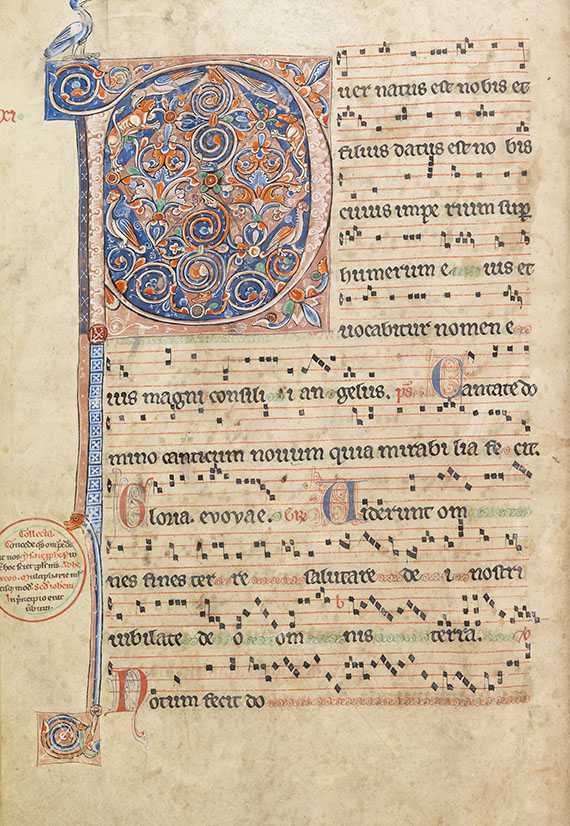 Puer natus est nobis et
filius datus est no bis
cuius impe rium sup
humerum e ius et
uocabitur nomen e
ius magni consili i an gelus. ps Cantate do
mino canticum nouum quia mirabi lia fe cit.
Gloria. euouae. Gr Uiderunt om
nes fines ter re salutare de i nostri
iubilate de o om nis terra. V
Notum fecit do
xi
Collecta.
Concede
In principio erat